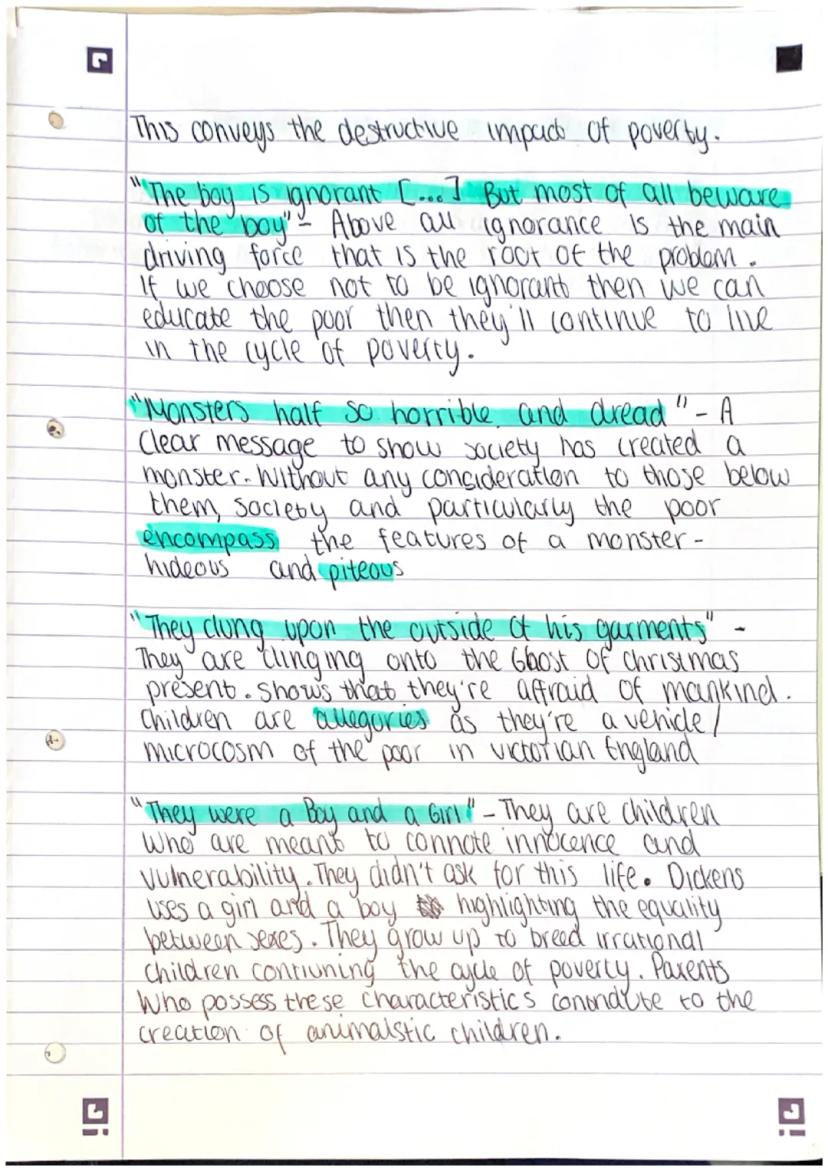 This conveys the destructive impact of poverty.
"The boy is ignorant [...] But most of all beware
of the boy" - Above all ignorance is the main
driving force that is the root of the problem.
If we choose not to be ignorant then we can
educate the poor then they'll continue to live
in the cycle of poverty.
"Monsters half so horrible and dread" - A
clear message to show society has created a
monster. Without any consideration to those below
them, society and particularly the poor
encompass the features of a monster -
hideous and piteous
"They clung upon the outside of his garments" -
They are clinging onto the Ghost of christmas
present. Shows that they're affraid of mankind.
Children are allegories as they're a vehicle/
microcosm of the poor in victorian England
"They were a Boy and a Girl" - They are children
who are meant to connote innocence and
vulnerability. They didn't ask for this life. Dickens
uses a girl and a boy highlighting the equality
between sexes. They grow up to breed irrational
children contiuning the cycle of poverty. Parents
who possess these characteristics contribute to the
creation of animalstic children.